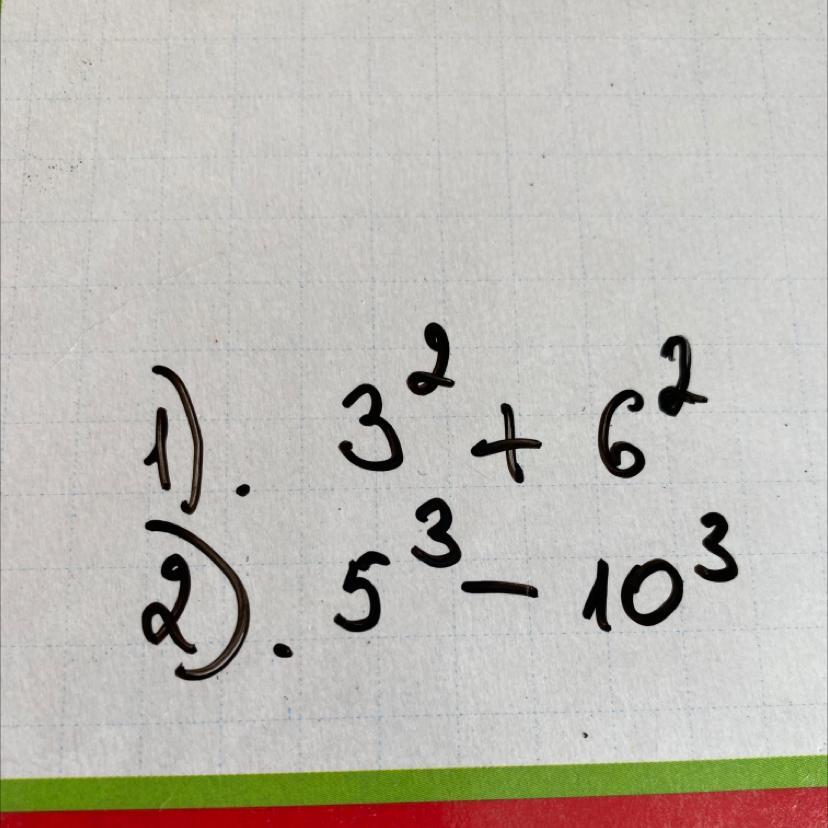 1). 3² + 6²
2). 5³ - 10³